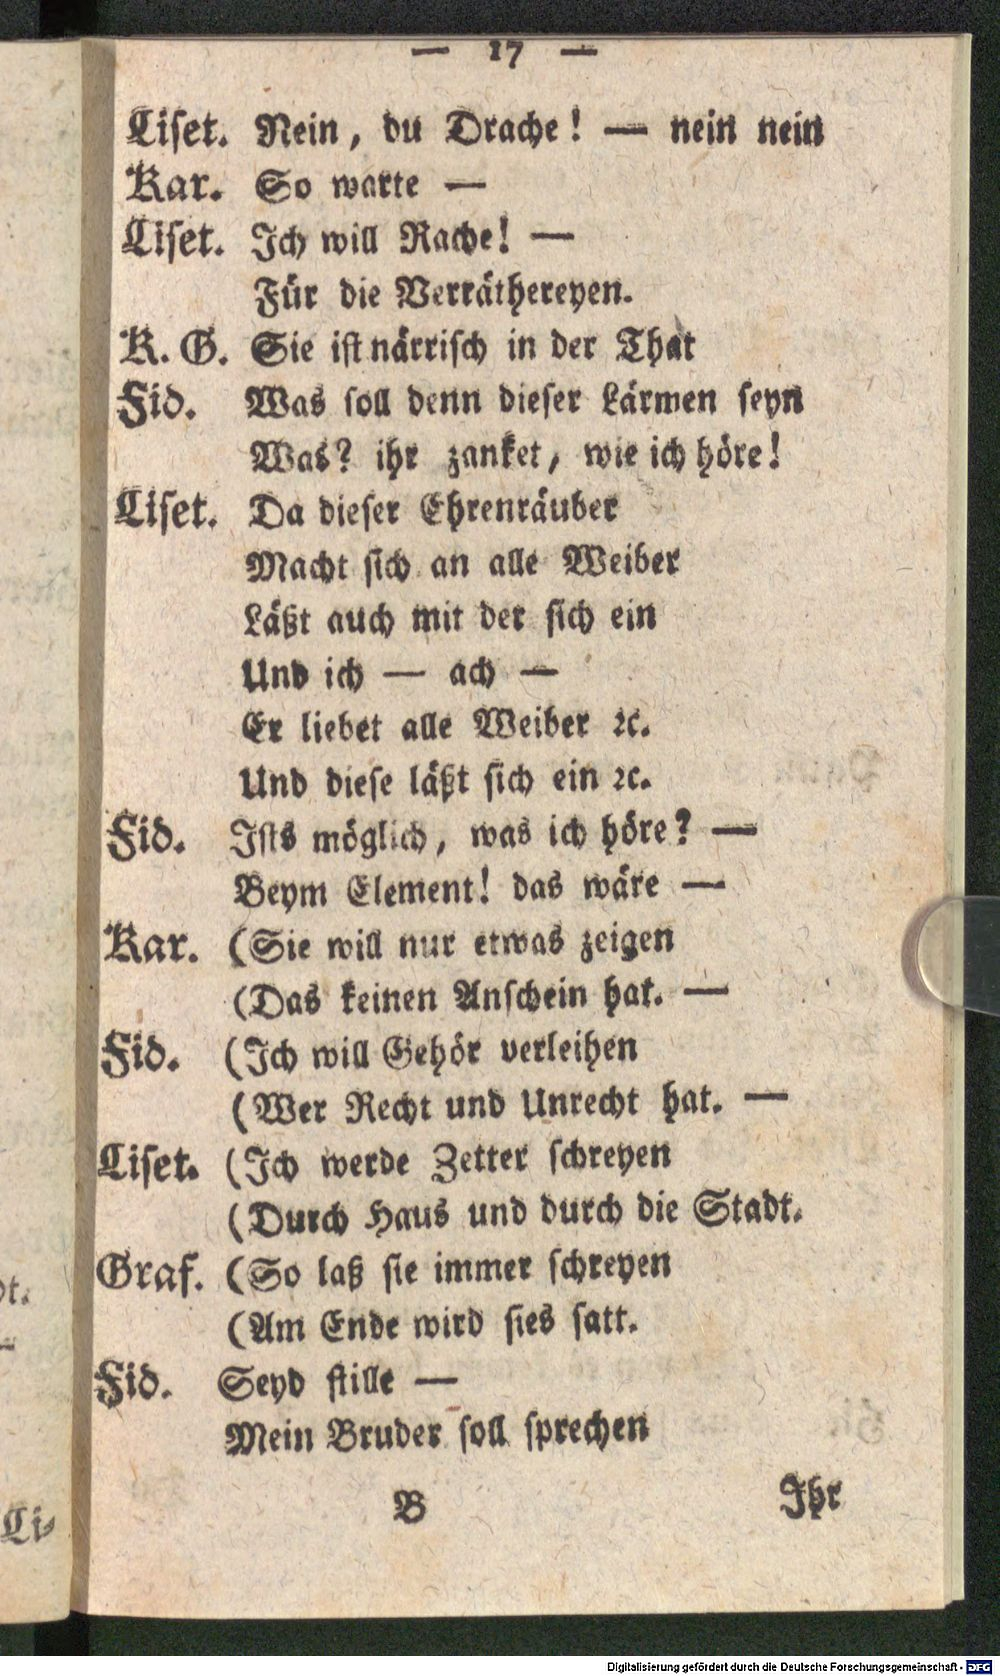 — 17 —
Liset. Nein, du Drache! — nein nein
Kar. So warte —
Liset. Ich will Rache! —
Für die Verräthereyen.
K. G. Sie ist närrisch in der That
Fid. Was soll denn dieser Lärmen seyn
Was? ihr zanket, wie ich höre!
Liset. Da dieser Ehrenräuber
Macht sich an alle Weiber
Läßt auch mit der sich ein
Und ich — ach —
Er liebet alle Weiber ꝛc.
Und diese läßt sich ein ꝛc.
Fid. Ists möglich, was ich höre? —
Beym Element! das wäre —
Kar. (Sie will nur etwas zeigen
(Das keinen Anschein hat. —
Fid. (Ich will Gehör verleihen
(Wer Recht und Unrecht hat. —
Liset. (Ich werde Zetter schreyen
(Durch Haus und durch die Stadt.
Graf. (So laß sie immer schreyen
(Am Ende wird sies satt.
Fid. Seyd stille —
Mein Bruder soll sprechen
B Ihr
Li-
Digitalisierung gefördert durch die Deutsche Forschungsgemeinschaft - DFG